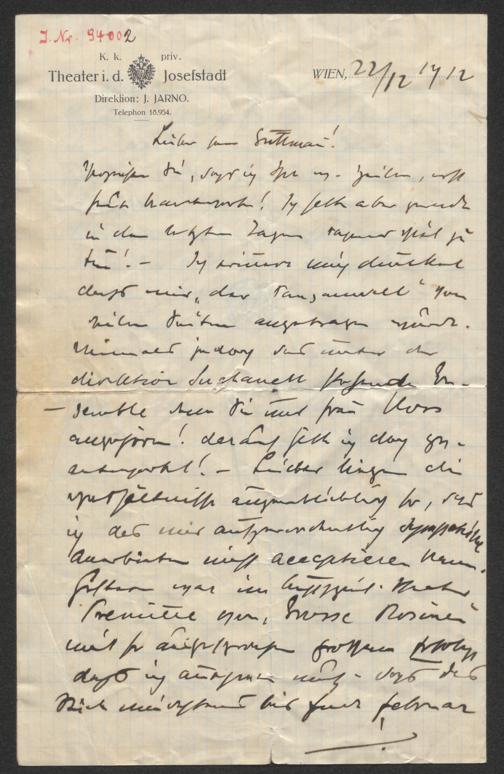 J. Nr. 94002
K. k. priv.
Theater i. d. Josefstadt
Direktion: J. JARNO.
Telephon 16.954.
WIEN, 22/12 1912
Lieber Herr Guttmann!
Verzeihen Sie, dass ich Ihr erst
heute beantworte! Ich hatte aber gerade
in den letzten Tagen rasend viel zu
tun! – Ich erinnere mich dunkel
dass mir "der Tanzanwalt" von
vielen Seiten angetragen wurde.
Niemals jedoch das unter der
direktion Suchanek stehende En-
semble dem Sie und frau
angehören! darauf hätte ich doch ge-
antwortet! – Leider liegen die
Verhältnisse augenblicklich so, dass
ich das mir außerordentlich sympathische
Anerbieten nicht acceptieren kann.
Gestern war im Theater
Premiere von "Grosse Rosinen"
mit so ausgesprochen grossem Erfolge
dass ich annehmen muss – dass das
Stück mindestens bis Ende februar